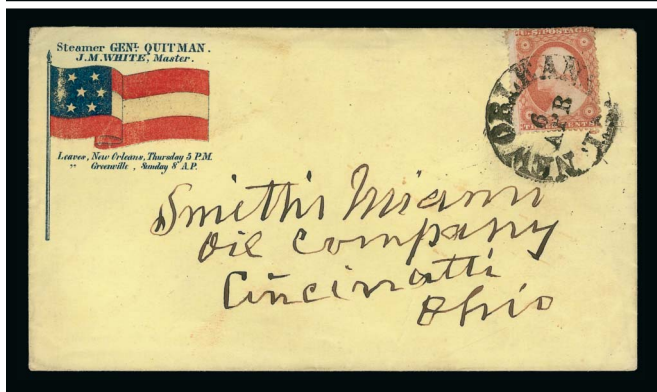 Steamer GENL QUITMAN.
J.M. WHITE, Master.
Leaves, New Orleans, Thursday 5 P.M.
" Greenville, Sunday 8 A.P.
U.S. POSTAGE
NEW ORLEANS
6
APR
Smith's Miami
Oil Company
Cincinatti
Ohio